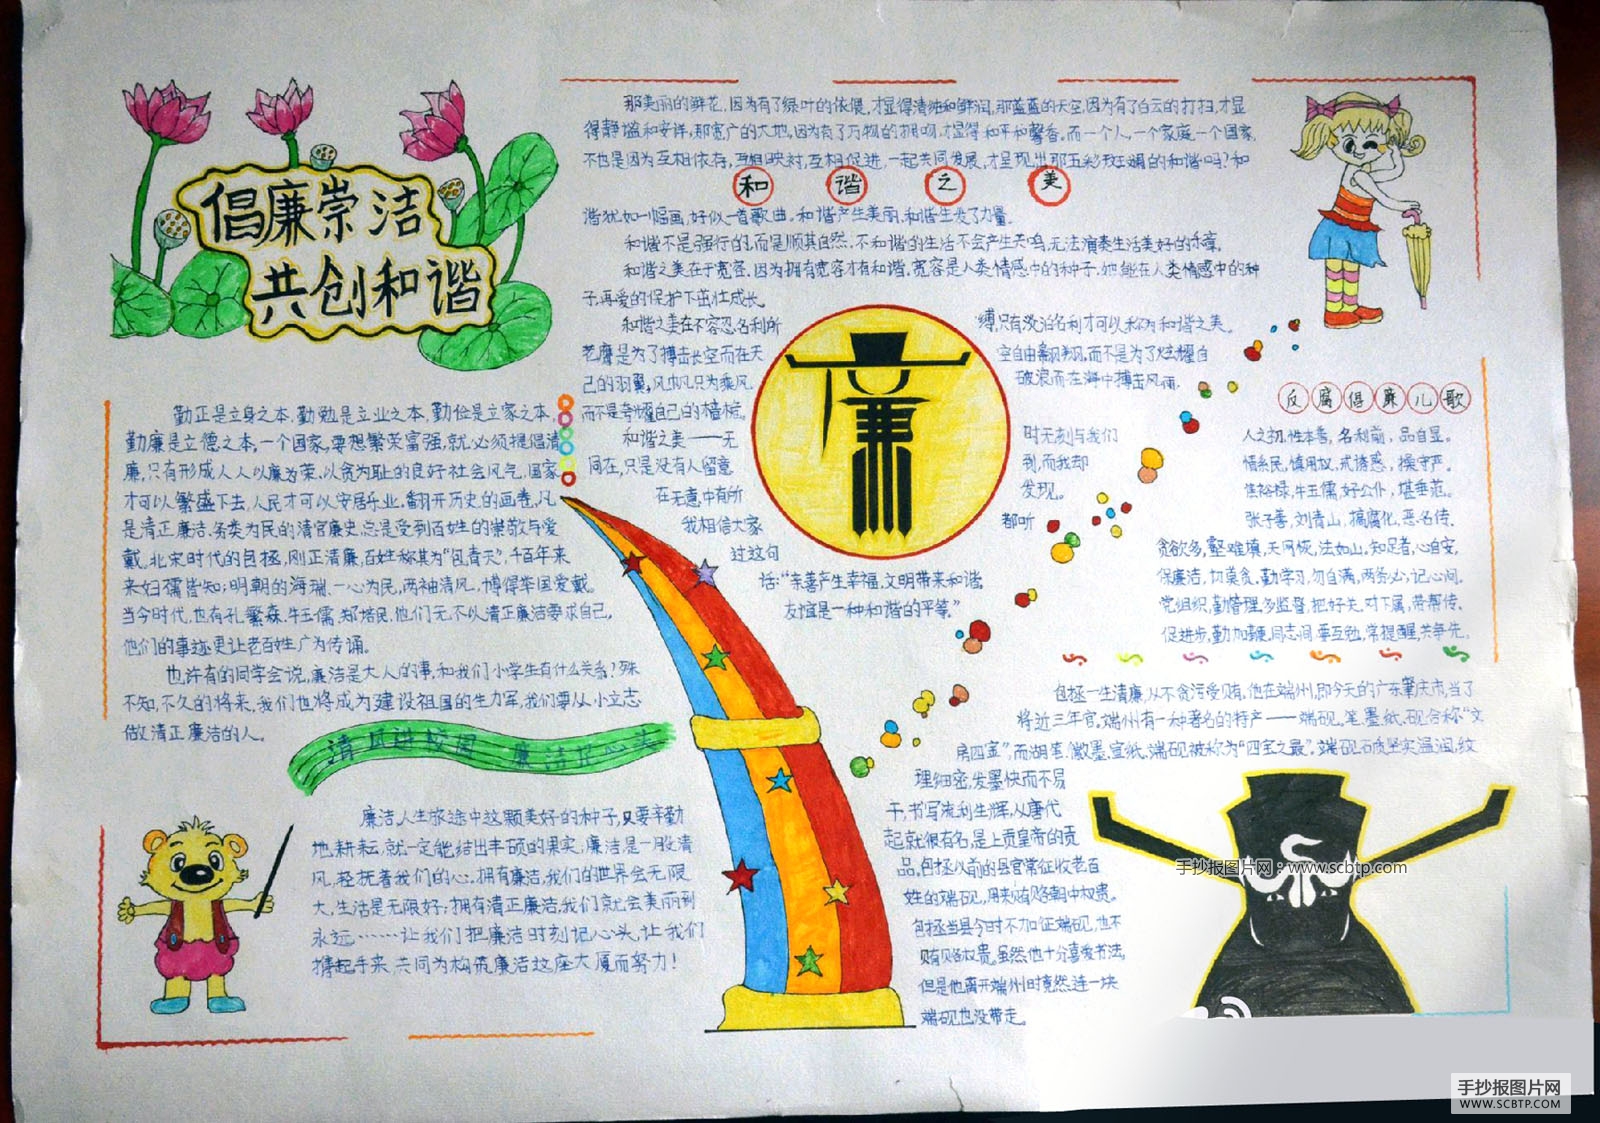 倡廉崇洁
共创和谐
那美丽的鲜花,因为有了绿叶的依偎,才显得清纯和鲜润,那蓝蓝的天空,因为有了白云的打扫,才显
得静谧和安详,那宽广的大地,因为有了万物的拥吻,才显得和平和馨香,而一个人,一个家庭,一个国家,
不也是因为互相依存,互相映衬,互相促进,一起共同发展,才呈现出那五彩斑斓的和谐吗?和
和谐之美
谐犹如一幅画,好似一首歌曲,和谐产生美丽,和谐生发了力量。
和谐不是强行的,而是顺其自然,不和谐的生活不会产生共鸣,无法演奏生活美好的乐章。
和谐之美在于宽容,因为拥有宽容才有和谐,宽容是人类情感中的种子,她能在人类情感中的种
子,再爱的保护下茁壮成长。
和谐之美在不容忍名利所
缚,只有淡泊名利才可以称为和谐之美。
苍鹰是为了搏击长空而在天
空自由翱翔,而不是为了炫耀自
己的羽翼,风帆只为乘风
破浪而在海中搏击风雨,
而不是夸耀自己的桅杆。
和谐之美——无
时无刻与我们
同在,只是没有人留意
到,而我却
在无意中有所
发现。
我相信大家
都听
过这句
话:“亲善产生幸福,文明带来和谐,
友谊是一种和谐的平等。”
廉
勤正是立身之本,勤勉是立业之本,勤俭是立家之本,
勤廉是立德之本,一个国家,要想繁荣富强,就必须提倡清
廉,只有形成人人以廉为荣,以贪为耻的良好社会风气,国家
才可以繁盛下去,人民才可以安居乐业,翻开历史的画卷,凡
是清正廉洁,务类为民的清官廉史,总是受到百姓的崇敬与爱
戴。北宋时代的包拯,刚正清廉,百姓称其为“包青天”,千百年来
来妇孺皆知;明朝的海瑞,一心为民,两袖清风,博得举国爱戴。
当今时代,也有孔繁森,牛玉儒,郑培民,他们无不以清正廉洁要求自己,
他们的事迹更让老百姓广为传诵。
也许有的同学会说,廉洁是大人的事,和我们小学生有什么关系?殊
不知,不久的将来,我们也将成为建设祖国的生力军,我们要从小立志
做清正廉洁的人。
清风进校园 廉洁记心头
廉洁人生旅途中这颗美好的种子,只要辛勤
地耕耘,就一定能结出丰硕的果实,廉洁是一股清
风,轻抚着我们的心,拥有廉洁,我们的世界会无限
大,生活是无限好;拥有清正廉洁,我们就会美丽到
永远……让我们把廉洁时刻记心头,让我们
携起手来,共同为构筑廉洁这座大厦而努力!
反腐倡廉儿歌
人之初,性本善,名利前,品自显。
惜亲民,慎用权,戒诱惑,操守严。
焦裕禄,牛玉儒,好公仆,堪垂范。
张子善,刘青山,搞腐化,恶名传。
贪欲多,壑难填,天网恢,法如山,知足者,心自安,
保廉洁,切莫贪,勤学习,勿自满,两务必,记心间。
党组织,勤管理,多监督,把好关,对下属,带帮传,
促进步,勤加鞭,同志间,要互勉,常提醒,关争先。
包拯一生清廉,从不贪污受贿,他在端州,即今天的广东肇庆市,当了
将近三年官。端州有一种著名的特产——端砚。笔、墨、纸、砚合称“文
房四宝”,而湖笔、徽墨、宣纸、端砚被称为“四宝之最”。端砚石质坚实温润,纹
理细密,发墨快而不易
干,书写流利生辉,从唐代
起就很有名,是上贡皇帝的贡
品,包拯以前的县官常征收老百
姓的端砚,用来贿赂朝中权贵。
包拯当县令时不加征端砚,也不
贿赂权贵。虽然他十分喜爱书法,
但是他离开端州时竟然连一块
端砚也没带走。
手抄报图片网:www.scbtp.com
手抄报图片网
WWW.SCBTP.COM